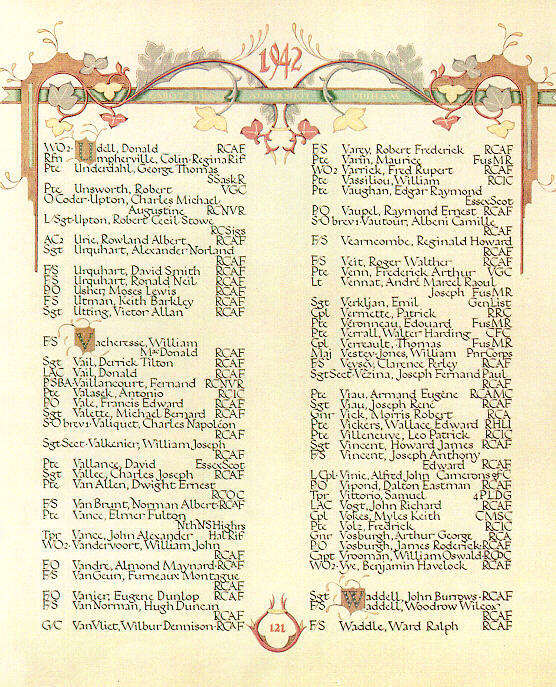 1942
WO2 Udell, Donald RCAF
Rfn Umpherville, Colin Regina Rif
Pte Underdahl, George Thomas
SSaskR
Pte Unsworth, Robert VGC
O Coder-Upton, Charles Michael
Augustine RCNVR
L/Sgt-Upton, Robert Cecil Stowe
RCSigs
AC2 Urie, Rowland Albert RCAF
Sgt Urquhart, Alexander Norland
RCAF
F/S Urquhart, David Smith RCAF
F/S Urquhart, Ronald Neil RCAF
PO Usher, Moses Lewis RCAF
F/S Utman, Keith Barkley RCAF
Sgt Utting, Victor Allan RCAF
F/S Vacheresse, William
MacDonald RCAF
Sgt Vail, Derrick Tilton RCAF
LAC Vail, Donald RCAF
PSBA Vaillancourt, Fernand RCNVR
Pte Valasek, Antonio RCIC
PO Vale, Francis Edward RCAF
Sgt Valette, Michael Bernard RCAF
S/O brev't-Valiquet, Charles Napoléon
RCAF
Sgt Sect-Valkenier, William Joseph
RCAF
Pte Vallance, David EssexScot
Sgt Vallee, Charles Joseph RCAF
Pte Van Allen, Dwight Ernest
RCOC
F/S Van Brunt, Norman Albert RCAF
Pte Vance, Elmer Fulton
NthNSHighrs
Tpr Vance, John Alexander Hal Rif
WO2 Vandervoort, William John
RCAF
FO Vandre, Almond Maynard RCAF
F/S VanGeun, Furneaux Montague
RCAF
FO Vanier, Eugene Dunlop RCAF
F/S VanNorman, Hugh Duncan
RCAF
G/C VanVliet, Wilbur Dennison RCAF
F/S Varey, Robert Frederick RCAF
Pte Varin, Maurice FusMR
WO2 Varrick, Fred Rupert RCAF
Pte Vassiliou, William RCIC
Pte Vaughan, Edgar Raymond
EssexScot
PO Vaupel, Raymond Ernest RCAF
S/O brev't-Vautour, Albeni Camille
RCAF
F/S Vearncombe, Reginald Howard
RCAF
F/S Veit, Roger Walther RCAF
Pte Venn, Frederick Arthur VGC
Lt Vennat, André Marcel Raoul
Joseph FusMR
Sgt Verkljan, Emil GenList
Cpl Vermette, Patrick RRC
Pte Véronneau, Edouard FusMR
Pte Verrall, Walter Harding CFC
Cpl Verreault, Thomas FusMR
Maj Vestey-Jones, William PnrCorps
F/S Veysey, Clarence Perley RCAF
Sgt Sect-Vézina, Joseph Fernand Paul
RCAF
Pte Viau, Armand Eugène RCAMC
Sgt Viau, Joseph René RCAF
Gnr Vick, Morris Robert RCA
Pte Vickers, Wallace Edward RHLI
Pte Villeneuve, Leo Patrick RCIC
Sgt Vincent, Howard James RCAF
F/S Vincent, Joseph Anthony
Edward RCAF
L/Cpl-Vinie, Alfred John Camerons of C
PO Vipond, Dalton Eastman RCAF
Tpr Vittorio, Samuel 4PLDG
LAC Vogt, John Richard RCAF
Cpl Vokes, Myles Keith CMSC
Pte Volz, Fredrick RCIC
Gnr Vosburgh, Arthur George RCA
PO Vosburgh, James Roderick RCAF
Cpt Vrooman, William Oswald RCDC
WO2 Vye, Benjamin Havelock RCAF
Sgt Waddell, John Burrows RCAF
F/S Waddell, Woodrow Wilcox
RCAF
F/S Waddle, Ward Ralph RCAF
121